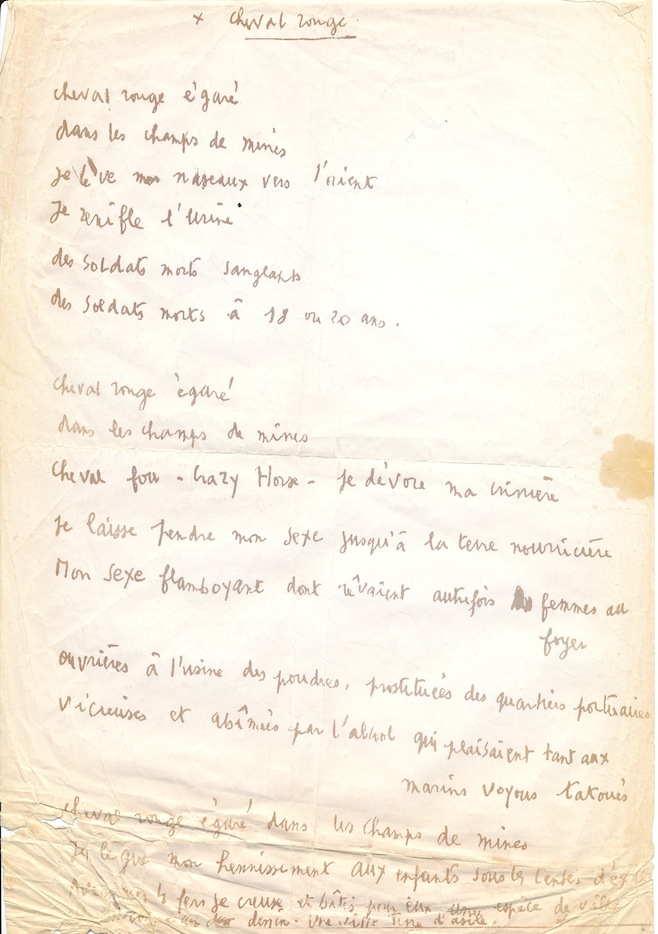 x cheval rouge.
cheval rouge égaré
dans les champs de mines
je lève mes naseaux vers l'orient
Je renifle l'urine
des soldats morts sanglants
des soldats morts à 18 ou 20 ans.
cheval rouge égaré
dans les champs de mines
cheval fou - Crazy Horse - je dévore ma crinière
je laisse pendre mon sexe jusqu'à la terre nourricière
Mon sexe flamboyant dont rêvaient autrefois femmes au
foyer
ouvrières à l'usine des poudres, prostituées des quartiers portuaires
vicieuses et abîmées par l'alcool qui plaisaient tant aux
marins voyous tatoués
cheval rouge égaré dans les champs de mines
Je lègue mon hennissement aux enfants sous les tentes
mes 4 fers je creuse et bâtis pour eux une espèce de ville
dessin. Une ville